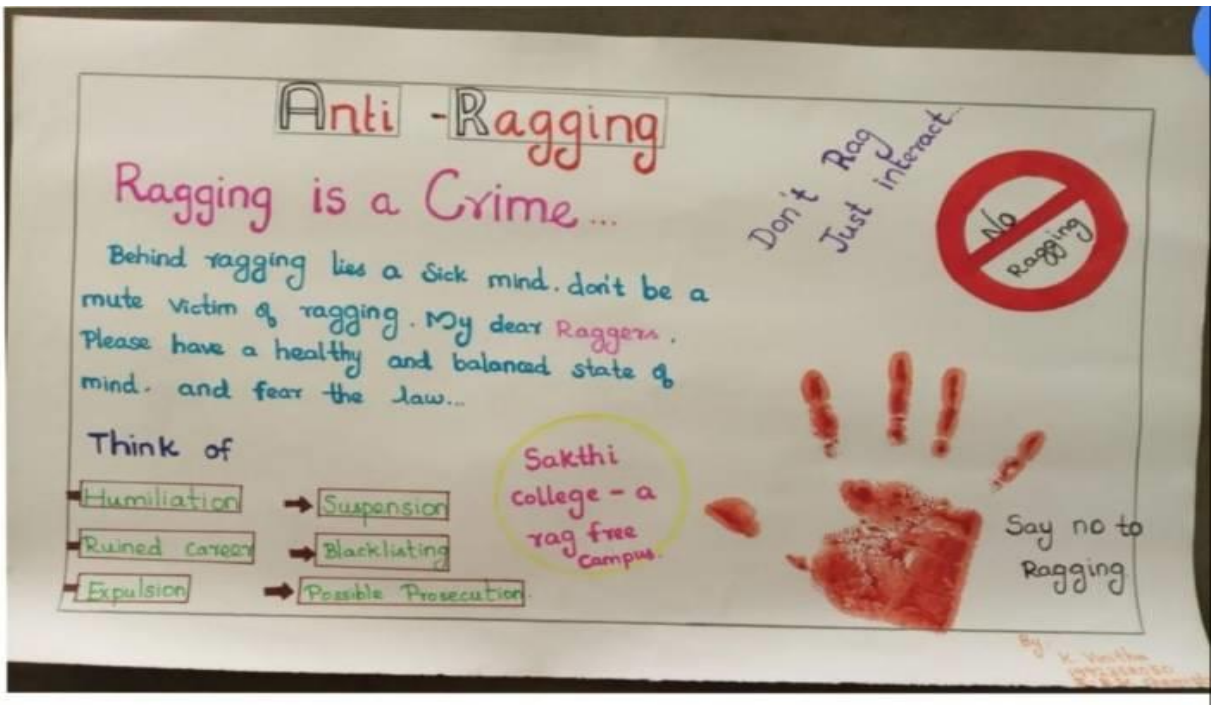 Anti - Ragging
Ragging is a Crime...
Behind ragging lies a Sick mind. don't be a
mute victim of ragging. My dear Raggers.
Please have a healthy and balanced state of
mind. and fear the law...
Think of
Humiliation
Suspension
Ruined career
Blacklisting
Expulsion
Possible Prosecution.
Sakthi
college - a
rag free
campus.
Don't Rag
Just interact...
No
Ragging
Say no to
Ragging
By